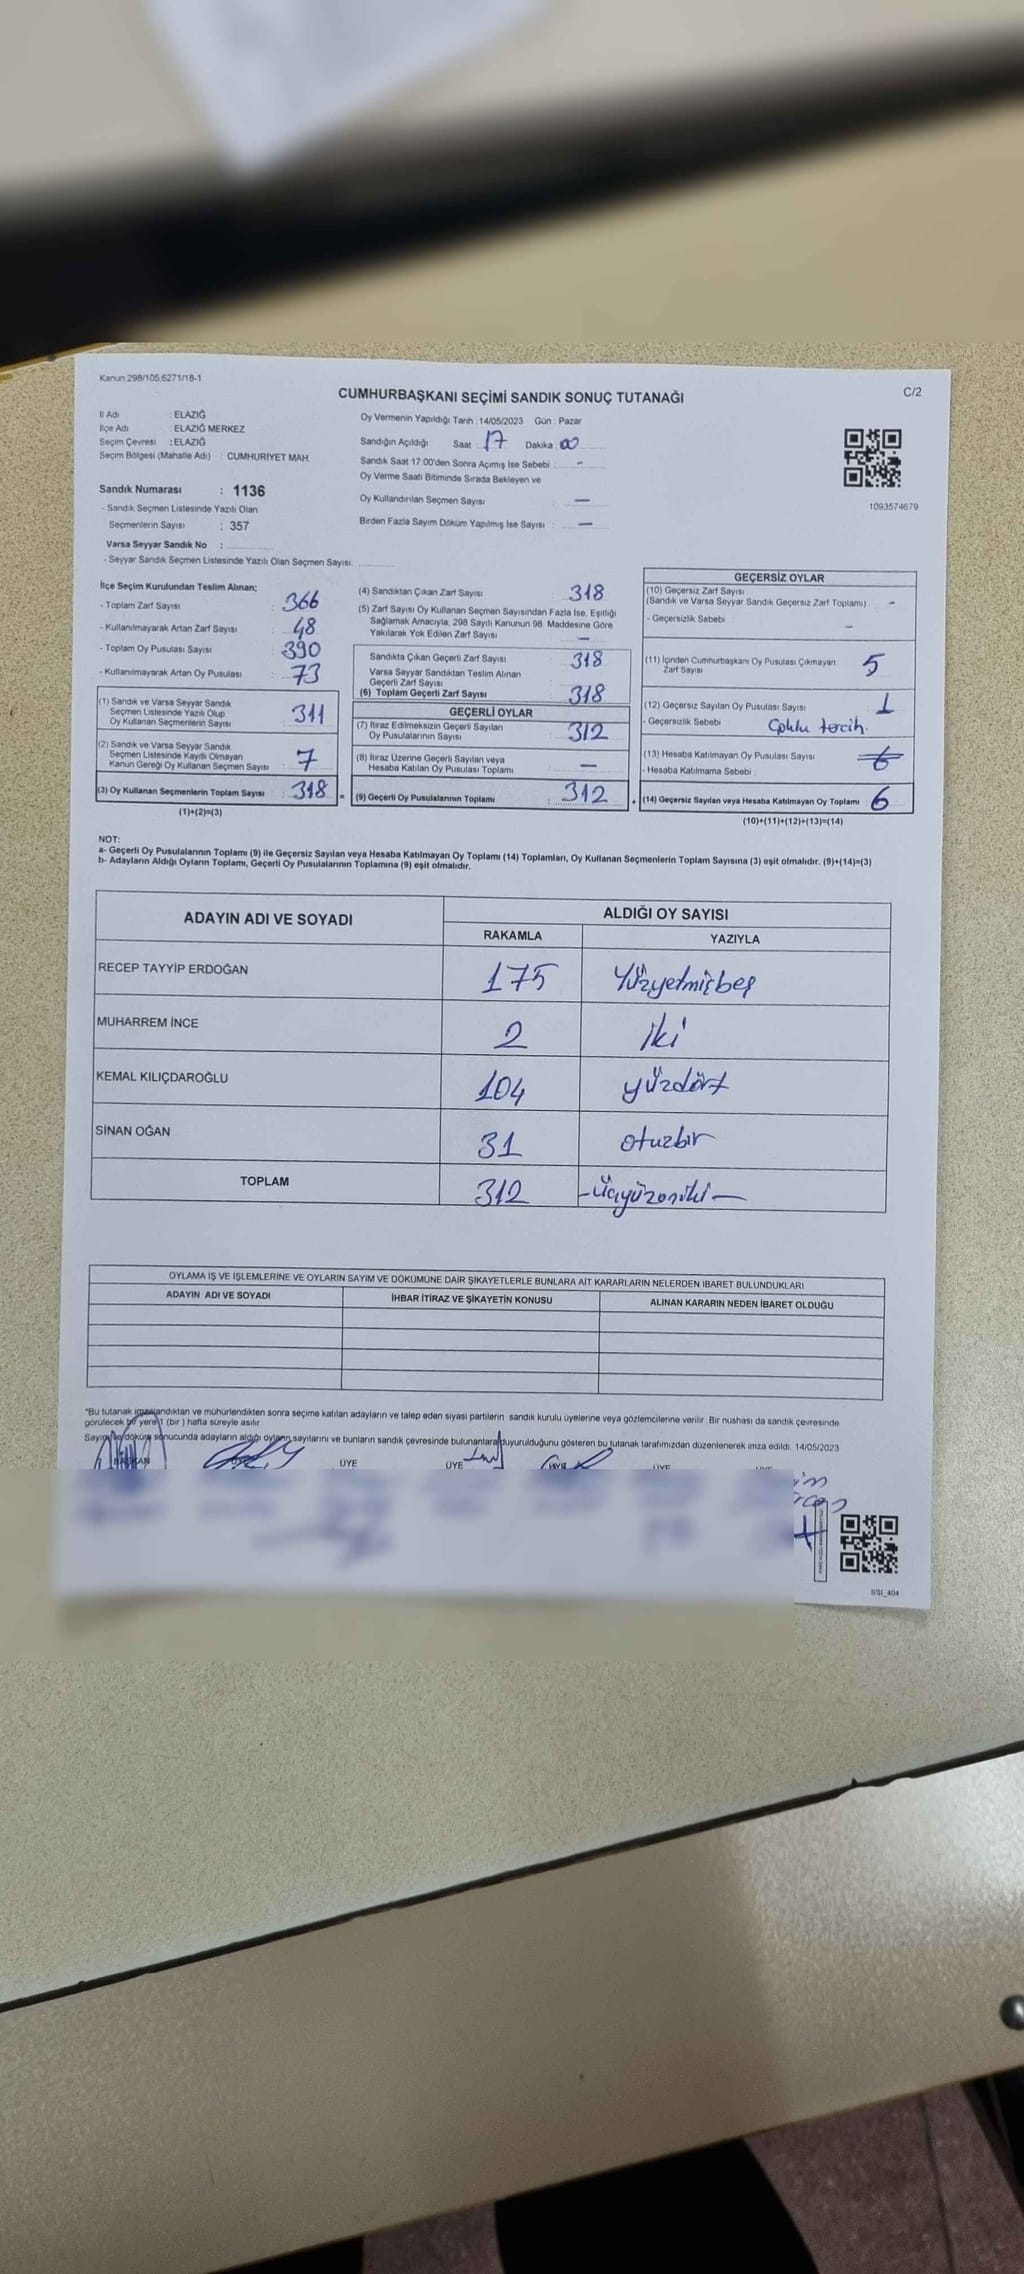 Kanun:298/105;6271/18-1
C/2
CUMHURBAŞKANI SEÇİMİ SANDIK SONUÇ TUTANAĞI
İl Adı : ELAZIĞ
İlçe Adı : ELAZIĞ MERKEZ
Seçim Çevresi : ELAZIĞ
Seçim Bölgesi (Mahalle Adı) : CUMHURİYET MAH.
Sandık Numarası : 1136
- Sandık Seçmen Listesinde Yazılı Olan
Seçmenlerin Sayısı : 357
Varsa Seyyar Sandık No :
- Seyyar Sandık Seçmen Listesinde Yazılı Olan Seçmen Sayısı:
Oy Vermenin Yapıldığı Tarih :14/05/2023 Gün : Pazar
Sandığın Açıldığı Saat : 17 Dakika : 00
Sandık Saat 17.00'den Sonra Açılmış İse Sebebi : -
Oy Verme Saati Bitiminde Sırada Bekleyen ve
Oy Kullandırılan Seçmen Sayısı : —
Birden Fazla Sayım Döküm Yapılmış İse Sayısı : —
1093574679
İlçe Seçim Kurulundan Teslim Alınan;
- Toplam Zarf Sayısı : 366
- Kullanılmayarak Artan Zarf Sayısı : 48
- Toplam Oy Pusulası Sayısı : 390
- Kullanılmayarak Artan Oy Pusulası : 73
(1) Sandık ve Varsa Seyyar Sandık
Seçmen Listesinde Yazılı Olup
Oy Kullanan Seçmenlerin Sayısı : 311
(2) Sandık ve Varsa Seyyar Sandık
Seçmen Listesinde Kayıtlı Olmayan
Kanun Gereği Oy Kullanan Seçmen Sayısı : 7
(3) Oy Kullanan Seçmenlerin Toplam Sayısı : 318
(1)+(2)=(3)
(4) Sandıktan Çıkan Zarf Sayısı : 318
(5) Zarf Sayısı Oy Kullanan Seçmen Sayısından Fazla İse, Eşitliği
Sağlamak Amacıyla, 298 Sayılı Kanunun 98. Maddesine Göre
Yakılarak Yok Edilen Zarf Sayısı : —
Sandıkta Çıkan Geçerli Zarf Sayısı : 318
Varsa Seyyar Sandıktan Teslim Alınan
Geçerli Zarf Sayısı :
(6) Toplam Geçerli Zarf Sayısı : 318
=
GEÇERLİ OYLAR
(7) İtiraz Edilmeksizin Geçerli Sayılan
Oy Pusulalarının Sayısı : 312
(8) İtiraz Üzerine Geçerli Sayılan veya
Hesaba Katılan Oy Pusulası Toplamı : —
(9) Geçerli Oy Pusulalarının Toplamı : 312
+
GEÇERSİZ OYLAR
(10) Geçersiz Zarf Sayısı
(Sandık ve Varsa Seyyar Sandık Geçersiz Zarf Toplamı) : -
- Geçersizlik Sebebi : —
(11) İçinden Cumhurbaşkanı Oy Pusulası Çıkmayan
Zarf Sayısı : 5
(12) Geçersiz Sayılan Oy Pusulası Sayısı : 1
- Geçersizlik Sebebi : Çoklu tercih.
(13) Hesaba Katılmayan Oy Pusulası Sayısı : 6
- Hesaba Katılmama Sebebi :
(14) Geçersiz Sayılan veya Hesaba Katılmayan Oy Toplamı : 6
(10)+(11)+(12)+(13)=(14)
NOT:
a- Geçerli Oy Pusulalarının Toplamı (9) ile Geçersiz Sayılan veya Hesaba Katılmayan Oy Toplamı (14) Toplamları, Oy Kullanan Seçmenlerin Toplam Sayısına (3) eşit olmalıdır. (9)+(14)=(3)
b- Adayların Aldığı Oyların Toplamı, Geçerli Oy Pusulalarının Toplamına (9) eşit olmalıdır.
ADAYIN ADI VE SOYADI
ALDIĞI OY SAYISI
RAKAMLA YAZIYLA
RECEP TAYYİP ERDOĞAN 175 Yüzyetmişbeş
MUHARREM İNCE 2 iki
KEMAL KILIÇDAROĞLU 104 yüzdört
SİNAN OĞAN 31 otuzbir
TOPLAM 312 -üçyüzoniki—
OYLAMA İŞ VE İŞLEMLERİNE VE OYLARIN SAYIM VE DÖKÜMÜNE DAİR ŞİKAYETLERLE BUNLARA AİT KARARLARIN NELERDEN İBARET BULUNDUKLARI
ADAYIN ADI VE SOYADI İHBAR İTİRAZ VE ŞİKAYETİN KONUSU ALINAN KARARIN NEDEN İBARET OLDUĞU
*Bu tutanak imzalandıktan ve mühürlendikten sonra seçime katılan adayların ve talep eden siyasi partilerin sandık kurulu üyelerine veya gözlemcilerine verilir. Bir nüshası da sandık çevresinde
görülecek bir yere 1 (bir ) hafta süreyle asılır.
Sayım ve döküm sonucunda adayların aldığı oyların sayılarını ve bunların sandık çevresinde bulunanlara duyurulduğunu gösteren bu tutanak tarafımızdan düzenlenerek imza edildi. 14/05/2023
BAŞKAN ÜYE ÜYE ÜYE ÜYE
SSI_404